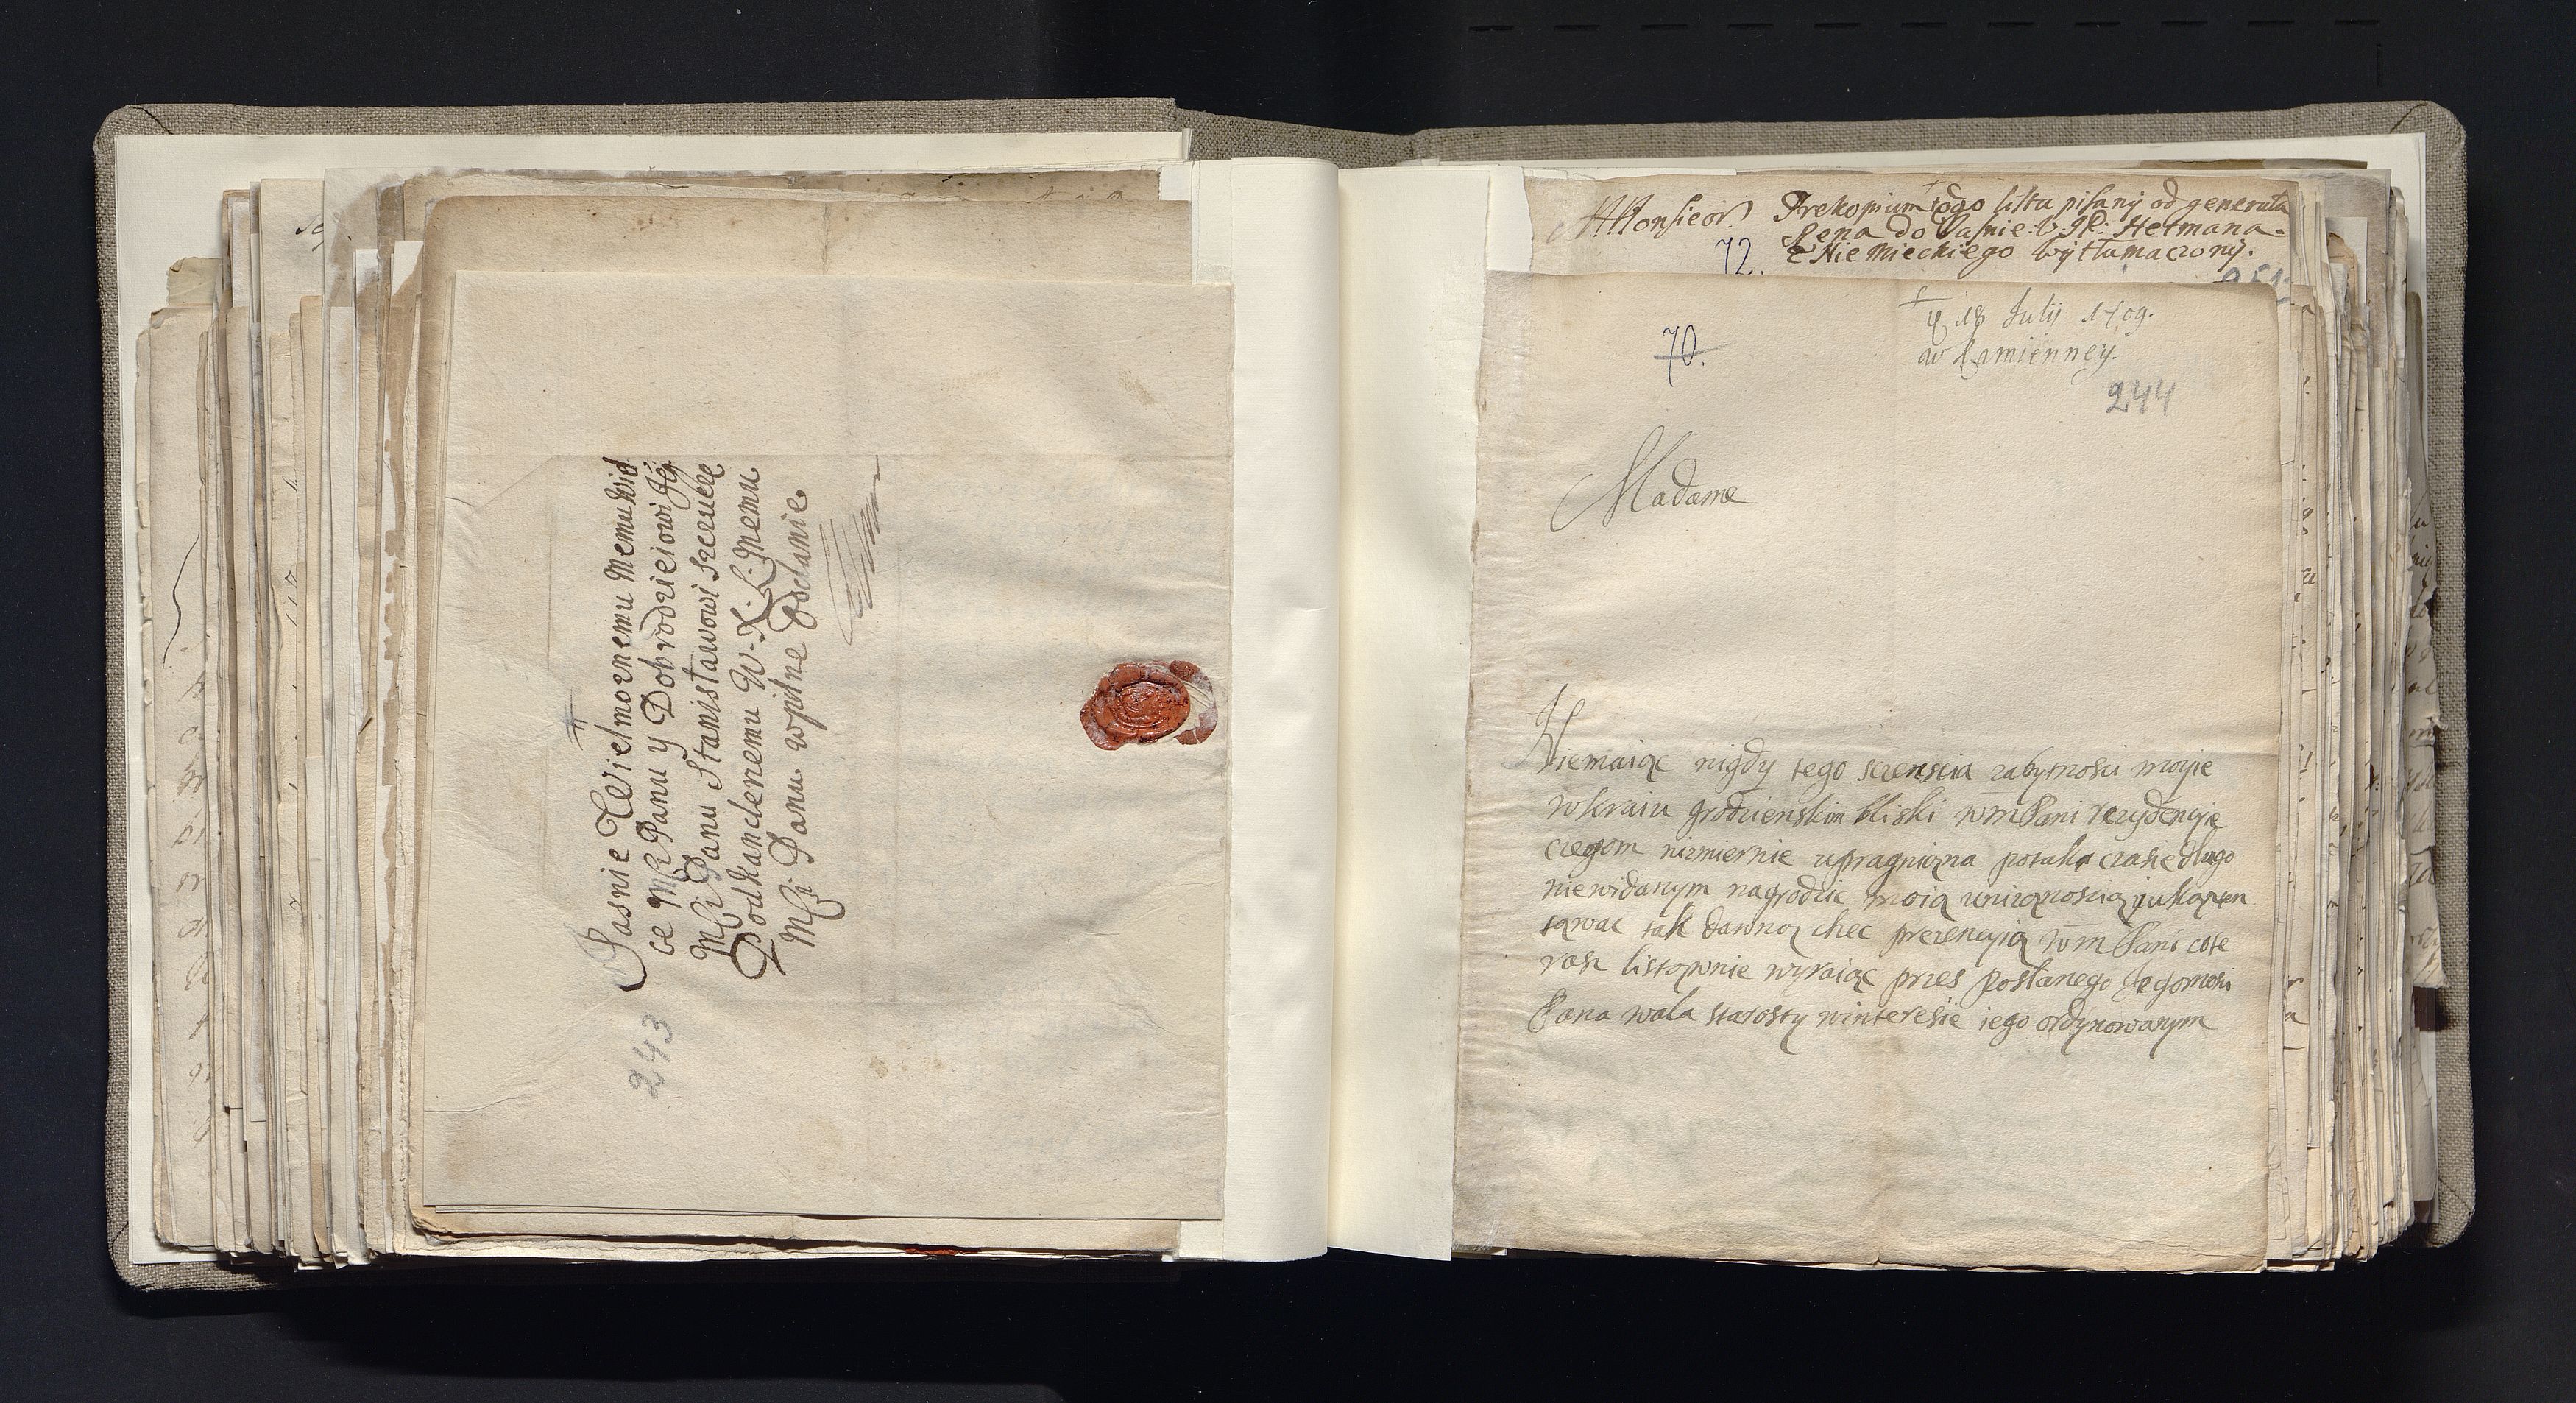 #
Jasnie Wielmoznemu Memu Wiel
ce Mci Panu y Dobrodzieiowi Je
Mci Panu Stanisławowi Szczuce
Podkanclerzemu W. X. L. Memu
Mci Panu wpilne Oddanie
243
Monsieor
72.
Prekopium tego listu pisany od generała
do Jasnie W. JP: Hetmana
z Niemieckiego wytłumaczony.
70.
18 Julij 1709.
w Kamienney.
244
Madame
Niemaiąc nigdy tego szczenscia zabytnosci moyie
w kraiu grodzienskim bliski wm Pani rezydencyie
czegom niezmiernie upragniona potak czasie długo
niewidanym nagrodzic moią unizonoscią
tak dawną chec prezencyią wm Pani
listownie wyraiąc przes posłanego Jegomosci
Pana wała starosty winteresie iego ordynowanym